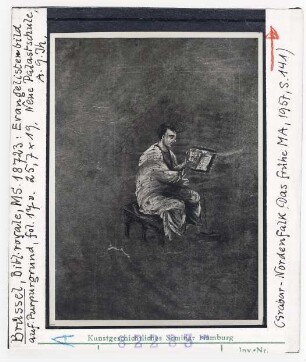 Brüssel, Bibl. royale, MS. 18723: Evangelistenbild
auf Purpurgrund, fol. 17v. 25,7 x 19, Neue Palastschule,
A. 9. Jh.
(Grabar-Nordenfalk: Das frühe MA, 1957, S. 141)
Kunstgeschichtliches Seminar Hamburg
Inv-Nr.